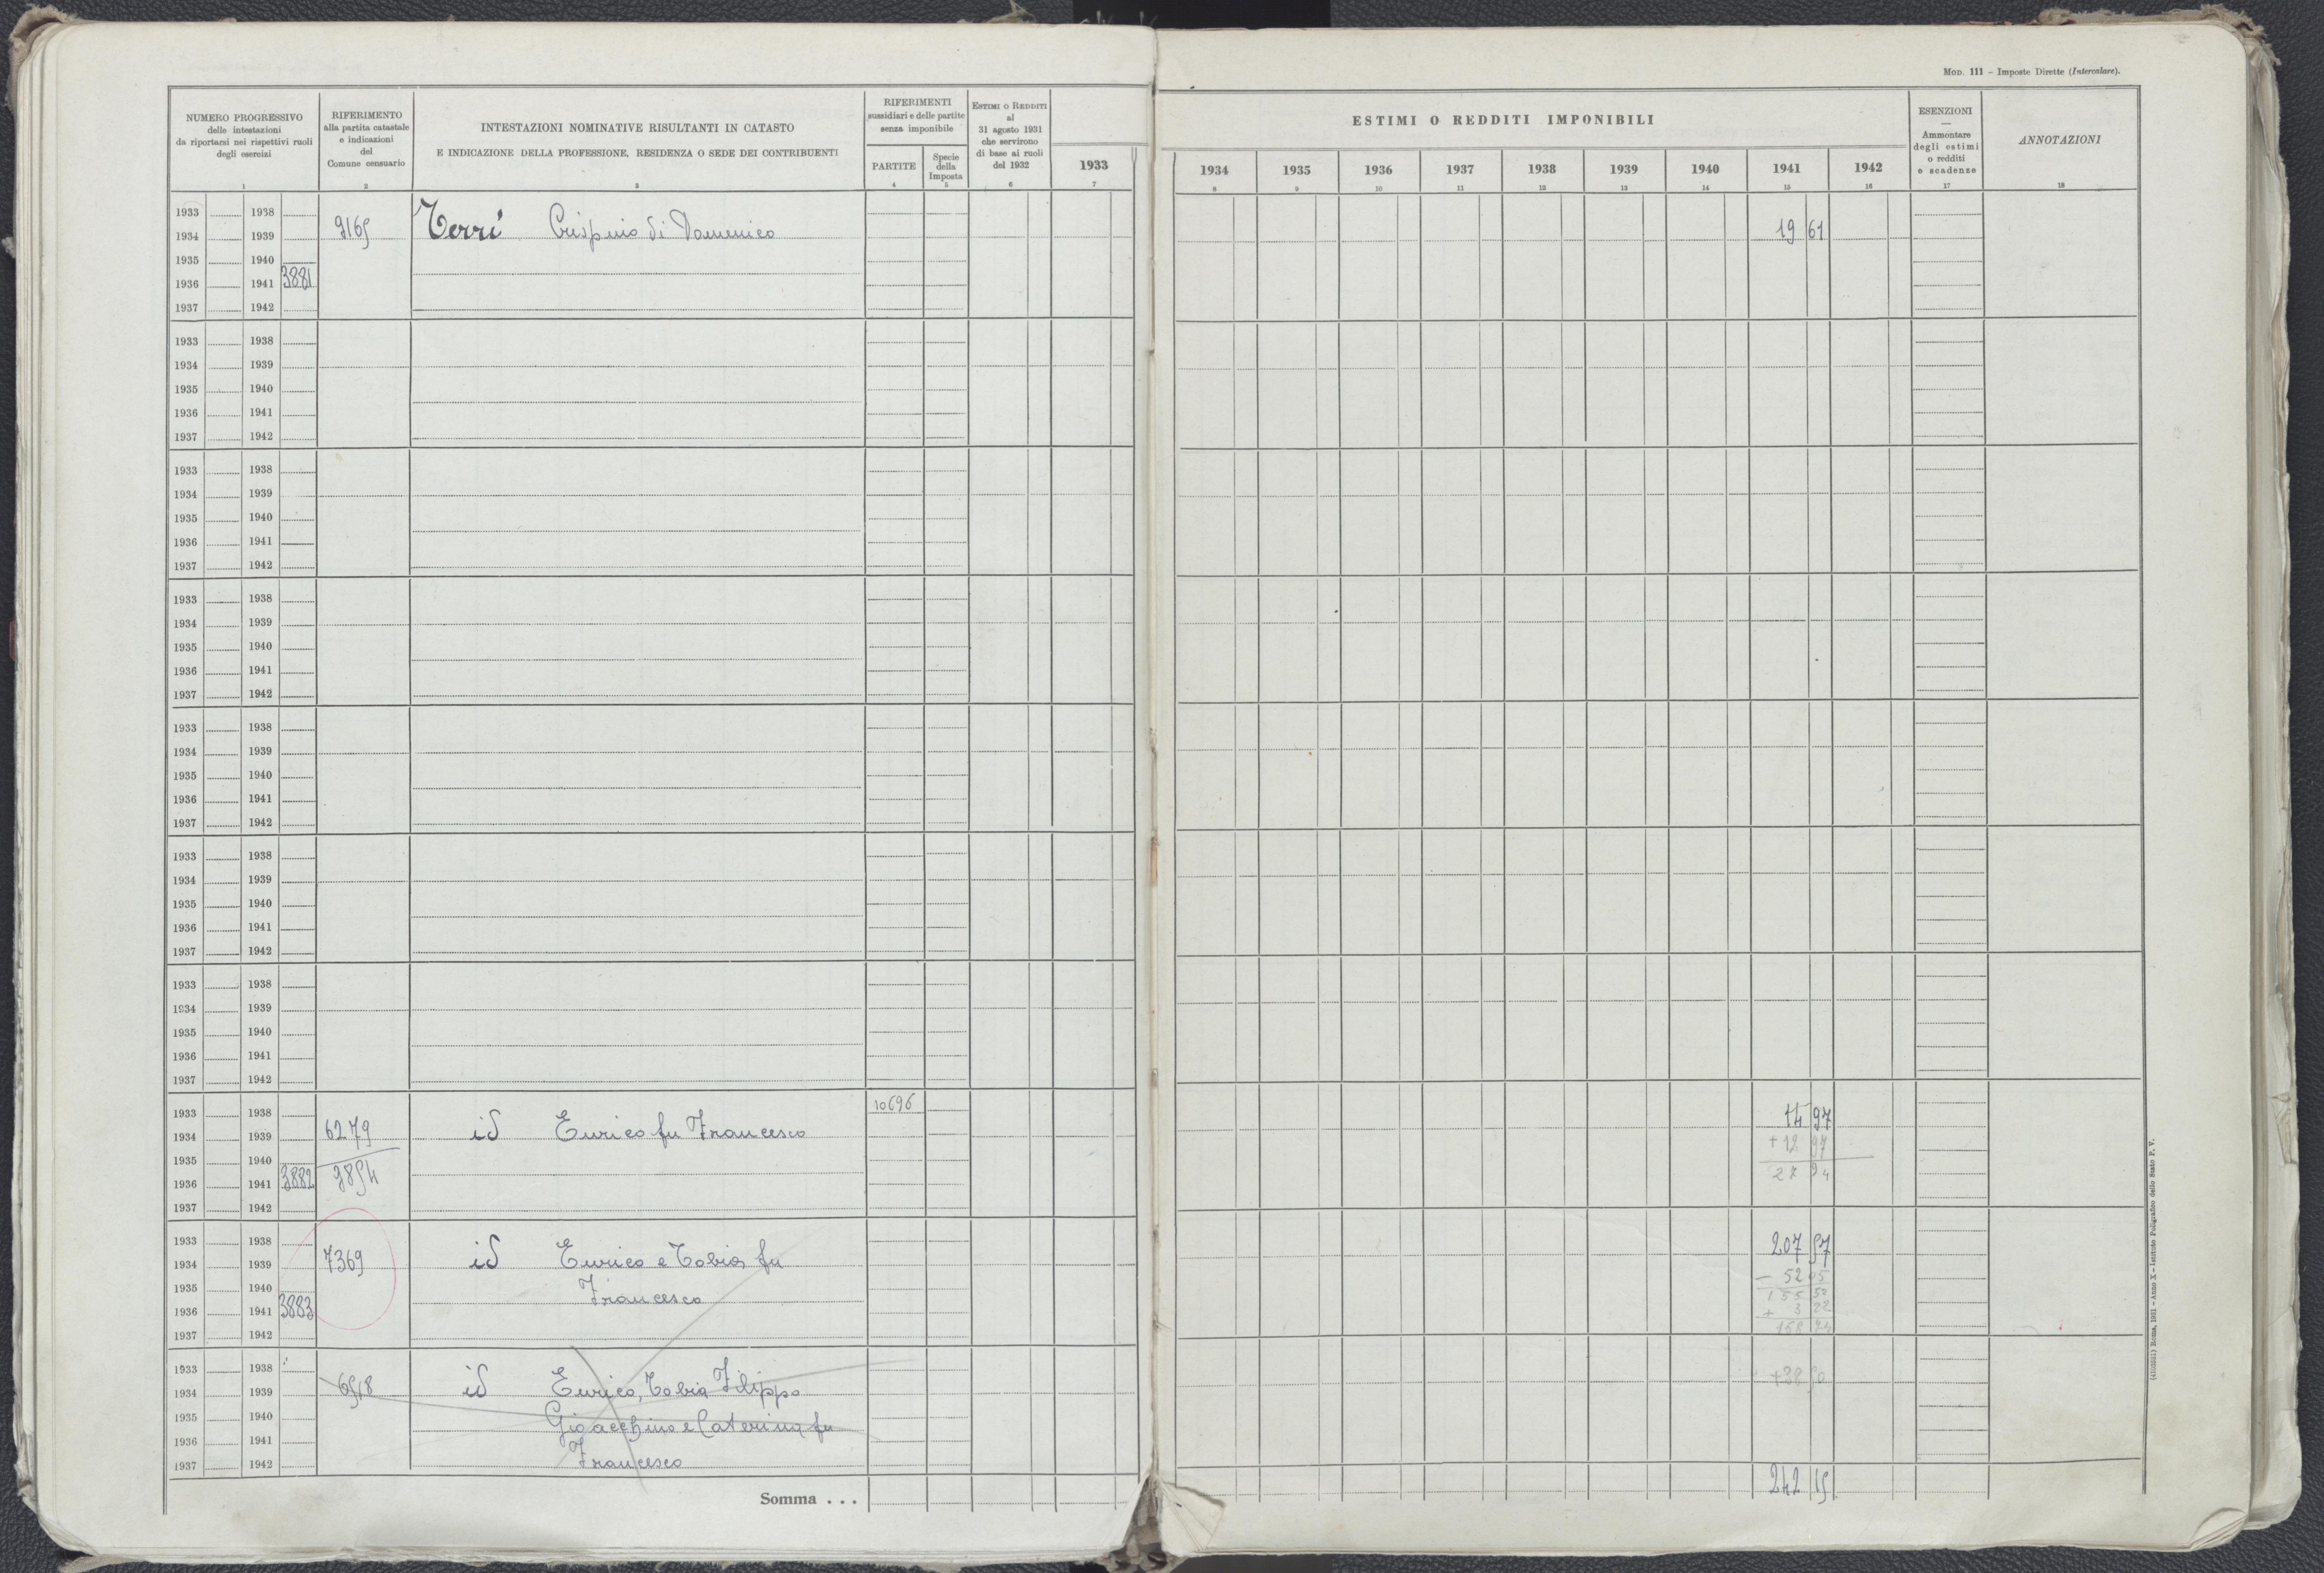 MOD. 111 – Imposte Dirette (Intercalare).
NUMERO PROGRESSIVO
delle intestazioni
da riportarsi nei rispettivi ruoli
degli esercizi
1
RIFERIMENTO
alla partita catastale
e indicazioni
del
Comune censuario
2
INTESTAZIONI NOMINATIVE RISULTANTI IN CATASTO
E INDICAZIONE DELLA PROFESSIONE, RESIDENZA O SEDE DEI CONTRIBUENTI
3
RIFERIMENTI
sussidiari e delle partite
senza imponibile
PARTITE
4
Specie
della
Imposta
5
ESTIMI O REDDITI
al
31 agosto 1931
che servirono
di base ai ruoli
del 1932
6
1933
7
ESTIMI O REDDITI IMPONIBILI
1934 1935 1936 1937 1938 1939 1940 1941 1942
8 9 10 11 12 13 14 15 16
ESENZIONI
—
Ammontare
degli estimi
o redditi
e scadenze
17
ANNOTAZIONI
18
1933 1938
1934 1939 9165 Verrì Crispino di Domenico 19 61
1935 1940
1936 1941 3881
1937 1942
1933 1938
1934 1939
1935 1940
1936 1941
1937 1942
1933 1938
1934 1939
1935 1940
1936 1941
1937 1942
1933 1938
1934 1939
1935 1940
1936 1941
1937 1942
1933 1938
1934 1939
1935 1940
1936 1941
1937 1942
1933 1938
1934 1939
1935 1940
1936 1941
1937 1942
1933 1938
1934 1939
1935 1940
1936 1941
1937 1942
1933 1938 10696 14 97
1934 1939 6279 id Enrico fu Francesco + 12 97
1935 1940
1936 1941 3882 9854 27 94
1937 1942
1933 1938 207 57
1934 1939 7369 id Enrico e Tobia fu
1935 1940 Francesco – 52 05
155 52
1936 1941 3883 + 3 22
1937 1942 158 74
1933 1938
1934 1939 6518 id Enrico, Tobia Filippo +38 50
1935 1940 Gioacchino e Caterina fu
1936 1941
1937 1942 Francesco
Somma . . . 242 15
(4103251) Roma, 1931 – Anno X – Istituto Poligrafico dello Stato P. V.